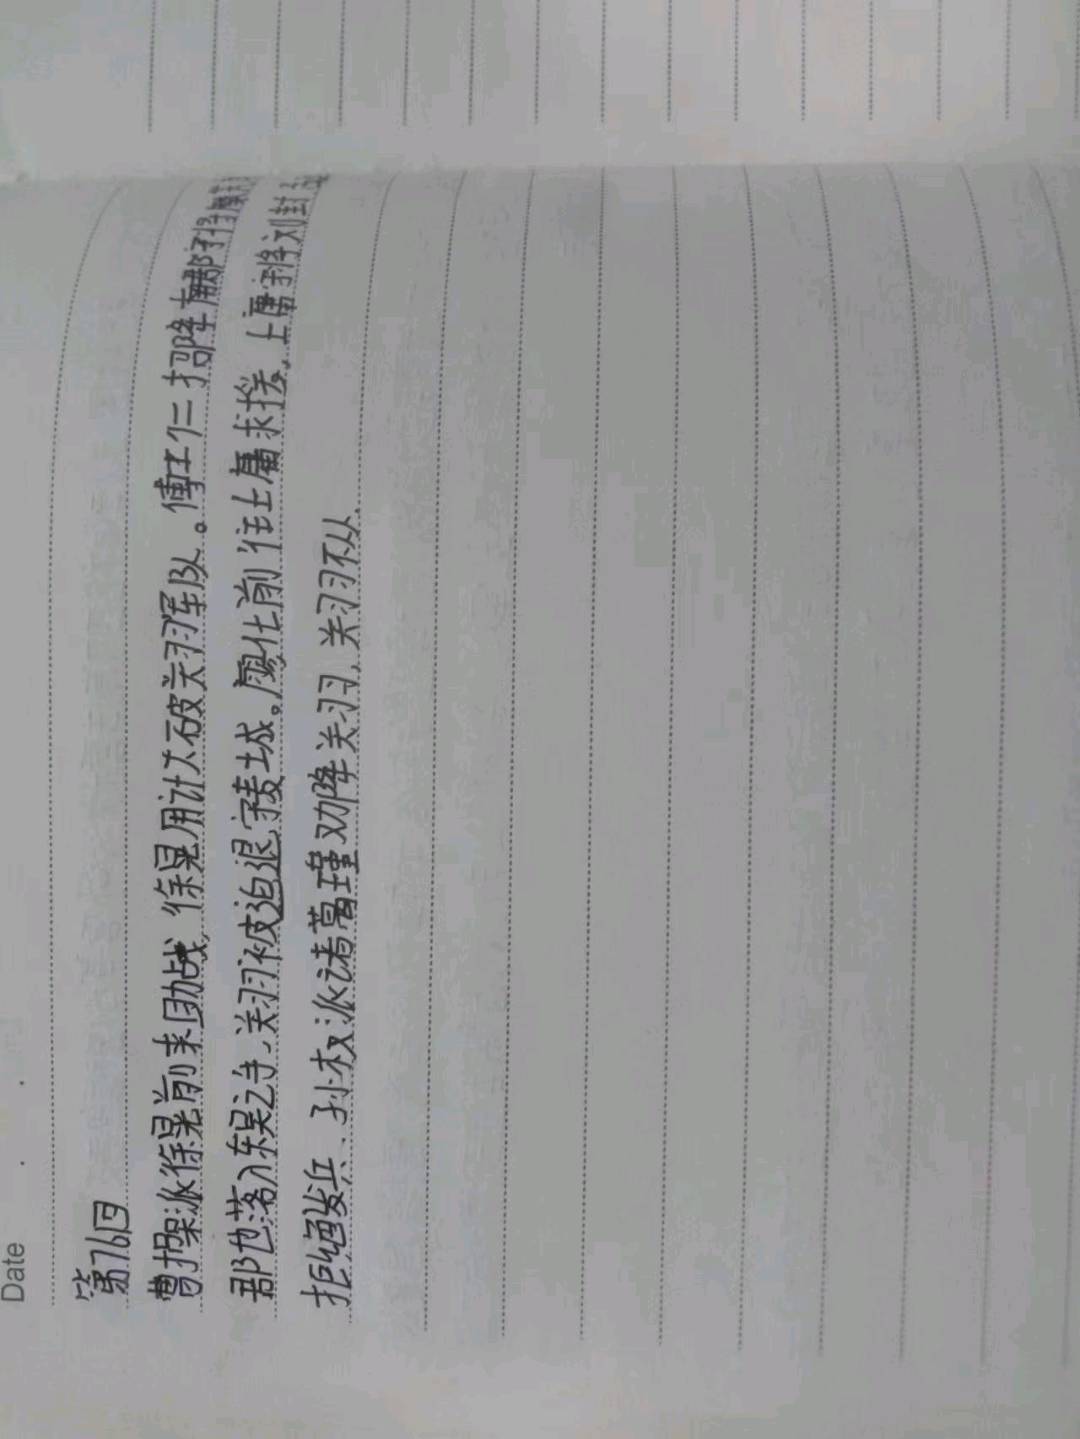 Date
第76回
曹操派徐晃前来助战,徐晃用计大破关羽军队。傅士仁招降南郡守将糜芳
郡也落入东吴之手,关羽被迫退守麦城。廖化前往上庸求援,上庸守将刘封
拒绝发兵、孙权派诸葛瑾劝降关羽,关羽不从.